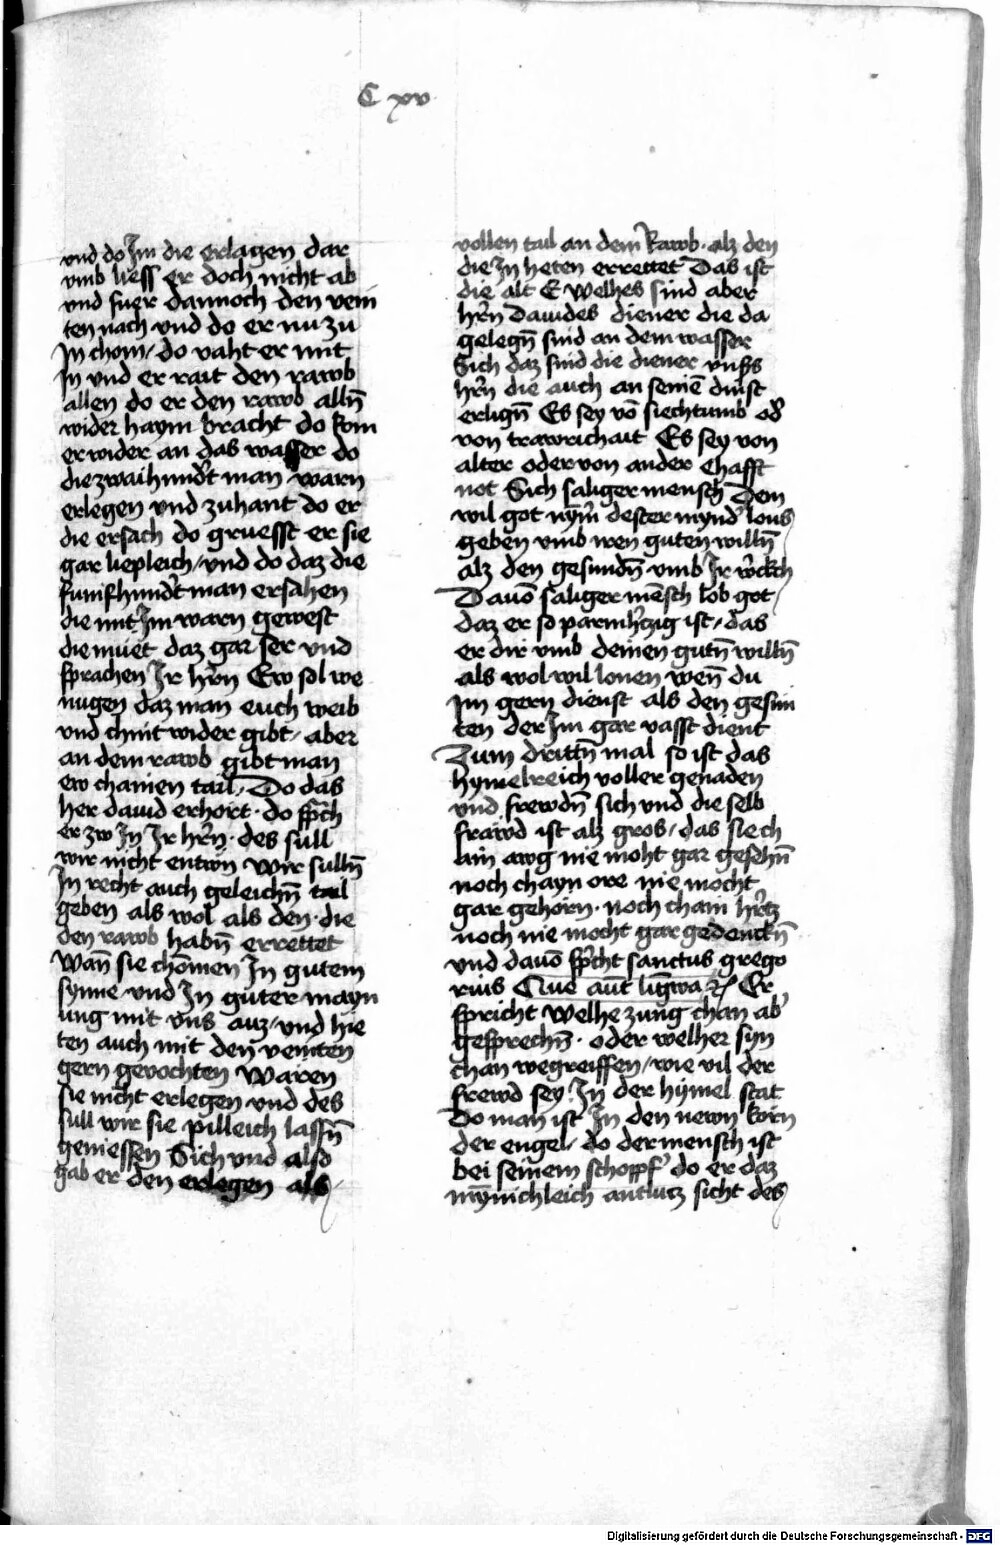 C xv
vnd do Im die erlagen dar
vmb liess er doch nicht ab
vnd fuer dannoch den vein
ten nach vnd do er nu zu
In chom / do vaht er mit
In vnd er rait den rawb
allen do er den rawb alln̄
wider haym bracht do kom
er wider an das wasser do
die zwaihund̄t man warn
erlegen vnd zuhant do er
die ersach do gruesst er sie
gar liepleich / vnd do daz die
fumfhund̄t man ersahen
die mit Im warn gewest
die müet daz gar ser vnd
sprachen Ir hr̄n Ew sol we
nugen daz man euch weib
vnd chint wider gibt / aber
an dem rawb gibt man
ew chainen tail / Do das
her dauid erhort · do sp̄ch
er zw In Ir hr̄n · des süll
wir nicht entwn wir sulln̄
In recht auch geleichn̄ tail
geben als wol als den · die
den rawb habn̄ errettet
Wan̄ sie chōmen In gutem
synne vnd In guter mayn
ung mit vns auz / vnd hie
ten auch mit den veinten
gern gevochten Waren
sie nicht erlegen vnd des
sull wir sie pilleich lassn̄
geniessen Sich vnd also
gab er den erlegen als /
vollen tail an dem Rawb · alz den
die In heten errettet Das ist
die alt E welhes sind aber
hr̄n dauides diener die da
gelegn̄ sind an dem wasser
Sich daz sind die diener vnss
hr̄n die auch an seinē dinst
erlign̄ Es sey vō siechtumb od̄
von trawrichait Es sey von
alter oder von ander Ehafft
not Sich saliger mensch Dem
wil got nym̄ dester mynd̄ lons
geben vmb iren guten willn̄ /
alz den gesundn̄ vmb Ir w̄ckch
Dauō saliger mēsch lob got /
daz er so parmh̄czig ist / das
er dir vmb deinen gutn̄ willn̄
als wol wil lonen wen̄ du
im gern dienst als den gesun
ten der Im gar vasst dient
Zum drittn̄ mal so ist das
hymelreich voller genaden
vnd frewdn̄ sich vnd die selb
frawd ist alz gros / das slech
ain awg nie moht gar gesehn̄
noch chayn ore nie mocht
gar gehorn · noch chain hr̄tz
noch nie mocht gar gedenckn̄
vnd dauō sp̄cht sanctus grego
rius Que aut ling̅wa ꝛc̄ Er
spricht Welhe zung chan ab̄
gesprechn̄ · oder welher syn
chan wegreiffen / wie vil der
frewd sey In der hymel stat
Do man ist In den newn korn
der engel / do der mensch ist
bei seinem schopf̄ do er daz
mȳnichleich antlutz sicht des
Digitalisierung gefördert durch die Deutsche Forschungsgemeinschaft - DFG